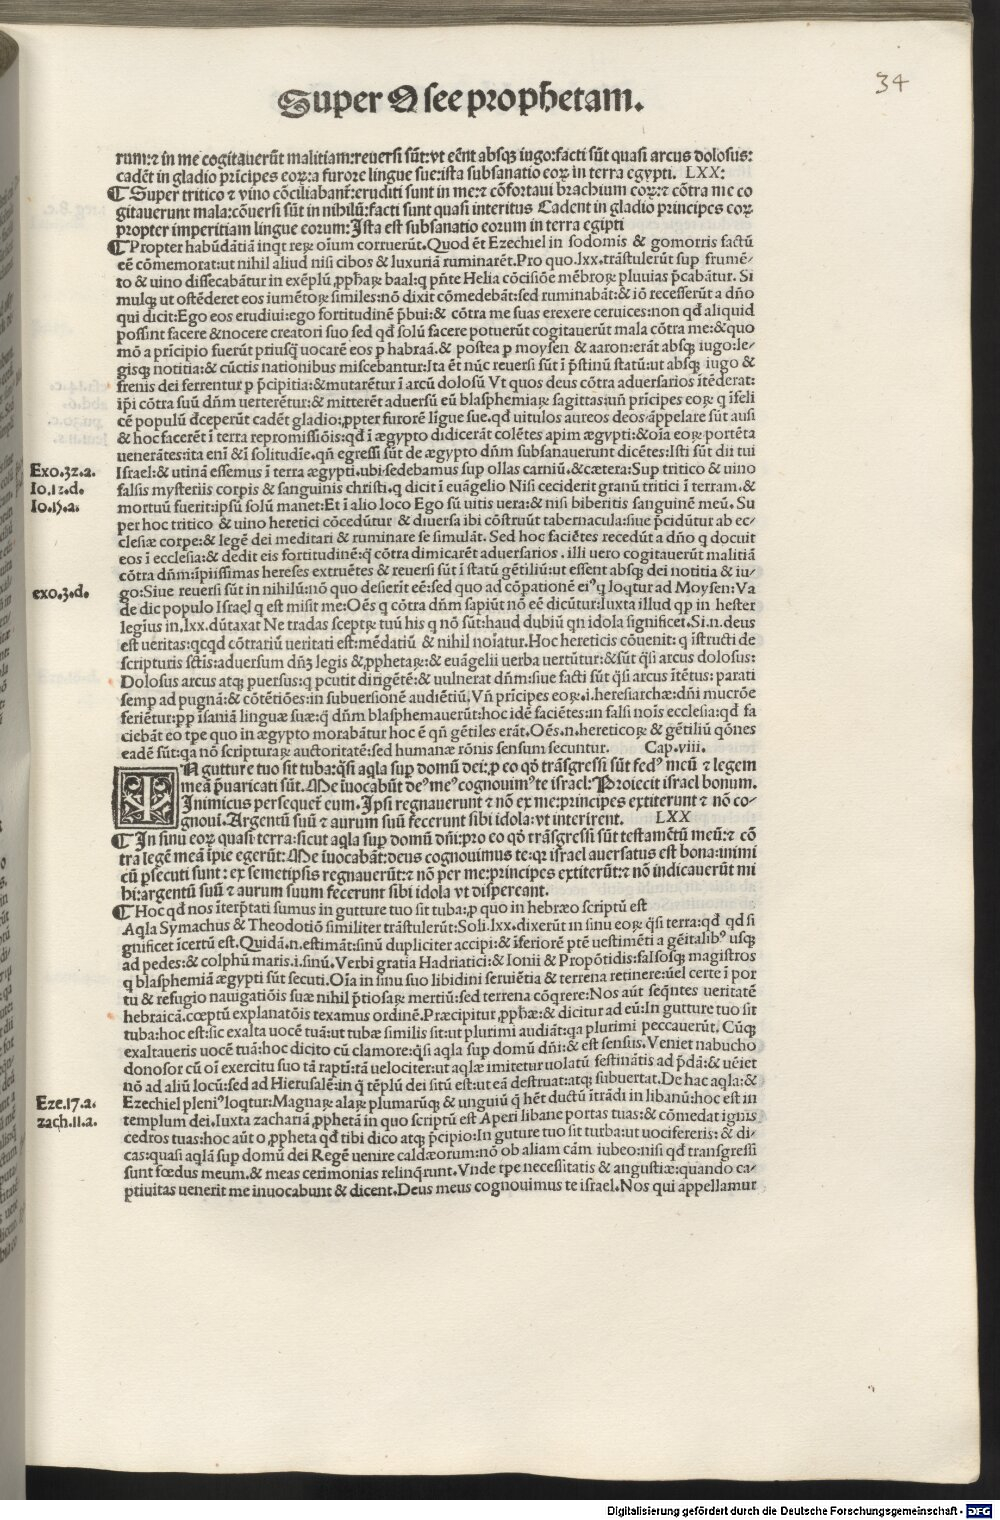 34
Super Osee prophetam.
rum:⁊ in me cogitauerūt malitiam:reuersi sūt:vt eēnt absqꝫ iugo:facti sūt quasi arcus dolosus:
cadēt in gladio prīcipes eoꝝ:a furore lingue sue:ista subsanatio eoꝝ in terra egypti. LXX:
¶ Super tritico ⁊ vino cōciliabant̄:eruditi sunt in me:⁊ cōfortaui brachium eoꝝ:⁊ cōtra me co
gitauerunt mala:cōuersi sūt in nihilū:facti sunt quasi interitus Cadent in gladio principes eoꝝ
propter imperitiam lingue eorum:Ista est subsanatio eorum in terra egipti
¶ Propter habūdātiā inqt reꝝ oīum corruerūt.Quod ēt Ezechiel in sodomis & gomorris factū
eē cōmemorat:ut nihil aliud nisi cibos & luxuriā ruminarēt.Pro quo.lxx.trāstulerūt sup frumē-
to & uino dissecabātur in exēplū ꝓphaꝝ baal:q pn̄te Helia cōcisiōe mēbroꝝ pluuias p̄cabātur. Si
mulqꝫ ut ostēderet eos iumētoꝝ similes:nō dixit cōmedebāt:sed ruminabāt:& iō recesserūt a dn̄o
qui dicit:Ego eos erudiui:ego fortitudinē p̄bui:& cōtra me suas erexere ceruices:non qđ aliquid
possint facere & nocere creatori suo sed qđ solū facere potuerūt cogitauerūt mala cōtra me:& quo
mō a prīcipio fuerūt priusq̄ uocarē eos p habraā.& postea p moysen & aaron:erāt absqꝫ iugo:le-
gisqꝫ notitia:& cūctis nationibus miscebantur:Ita ēt nūc reuersi sūt ī p̄stinū statū:ut absqꝫ iugo &
frenis dei ferrentur p p̄cipitia:& mutarētur ī arcū dolosū Vt quos deus cōtra aduersarios ītēderat:
ip̄i cōtra suū dn̄m uerterētur:& mitterēt aduersū eū blasphemiaꝝ sagittas:un̄ prīcipes eoꝝ q īfeli
cē populū đceperūt cadēt gladio:ꝓpter furorē līgue sue.qđ uitulos aureos deos appelare sūt ausi
& hoc facerēt ī terra repromissiōis:qđ ī ægypto didicerāt colētes apim ægypti:& oīa eoꝝ portēta
uenerātes:ita enī & ī solitudīe.qn̄ egressi sūt de ægypto dn̄m subsanauerunt dicētes:Isti sūt dii tui
Exo.32.a. Israel:& utinā essemus ī terra ægypti.ubi sedebamus sup ollas carniū.& cætera:Sup tritico & uino
Io.12.d. falsis mysteriis corpis & sanguinis christi.q dicit ī euāgelio Nisi ceciderit granū tritici ī terram.&
Io.15.a. mortuū fuerit:ipsū solū manet:Et ī alio loco Ego sū uitis uera:& nisi biberitis sanguinē meū. Su
per hoc tritico & uino heretici cōcedūtur & diuersa ibi cōstruūt tabernacula:siue p̄cidūtur ab ec-
clesiæ corpe:& legē dei meditari & ruminare se simulāt. Sed hoc faciētes recedūt a dn̄o q docuit
eos ī ecclesia:& dedit eis fortitudinē:q̄ cōtra dimicarēt aduersarios . illi uero cogitauerūt malitiā
cōtra dn̄m:īpiissimas hereses extruētes & reuersi sūt ī statū gētiliū:ut essent absqꝫ dei notitia & iu-
exo.3.d. go:Siue reuersi sūt in nihilū:nō quo desierīt eē:sed quo ad cōpationē eiꝰ q loqtur ad Moysen:Va
de dic populo Israel q est misit me:Oēs q cōtra dn̄m sapiūt nō eē dicūtur:Iuxta illud qp in hester
legīus in.lxx.dūtaxat Ne tradas sceptꝝ tuū his q nō sūt:haud dubiū qn idola significet.Si.n.deus
est ueritas:qcqd cōtrariū ueritati est:mēdatiū & nihil noīatur.Hoc hereticis cōuenit:q īstructi de
scripturis sctīs:aduersum dn̄ꝫ legis & ꝓphetaꝝ:& euāgelii uerba uertūtur:& sūt q̄si arcus dolosus:
Dolosus arcus atqꝫ puersus:q pcutit dirigētē:& uulnerat dn̄m:siue facti sūt q̄si arcus ītētus: parati
semp ad pugnā:& cōtētiōes:in subuersionē audiētiū.Vn̄ prīcipes eoꝝ.i.heresiarchæ:dn̄i mucrōe
feriētur:pp īsaniā linguæ suæ:q̄ dn̄m blasphemauerūt:hoc idē faciētes:in falsi noīs ecclesia:qđ fa
ciebāt eo tpe quo in ægypto morabātur hoc ē qn̄ gētiles erāt.Oēs.n.hereticoꝝ & gētiliū q̄ones
eadē sūt:qa nō scripturaꝝ auctoritatē:sed humanæ rōnis sensum secuntur. Cap.viii.
IN gutture tuo sit tuba:q̄si aqla sup̄ domū dei:ꝓ eo qō trāsgressi sūt fedꝰ meū ⁊ legem
meā p̄uaricati sūt.Me īuocabūt deꝰ meꝰ cognouimꝰ te israel:Proiecit israel bonum.
Inimicus persequet̄ eum. Ipsi regnauerunt ⁊ nō ex me:principes extiterunt ⁊ nō co-
gnoui.Argentū suū ⁊ aurum suū fecerunt sibi idola:vt interirent. LXX
¶ In sinu eoꝝ quasi terra:sicut aqla sup domū dn̄i:pro eo qō trāsgressi sūt testamētū meū:⁊ cō
tra legē meā īpie egerūt:Me īuocabāt:deus cognouimus te:qꝛ israel auersatus est bona:inimi
cū ꝑsecuti sunt : ex semetipsis regnauerūt:⁊ nō per me:principes extiterūt:⁊ nō indicauerūt mi
hi:argentū suū ⁊ aurum suum fecerunt sibi idola vt dispereant.
¶ Hoc qđ nos īterp̄tati sumus in gutture tuo sit tuba:ꝓ quo in hebræo scriptū est
Aqla Symachus & Theodotiō similiter trāstulerūt:Soli.lxx.dixerūt in sinu eoꝝ q̄si terra:qđ qd si
gnificet īcertū est.Quidā.n.estimāt:sinū dupliciter accipi:& īferiorē ptē uestimēti a gēitalibꝰ usqꝫ
ad pedes:& colphū maris.i.sinū.Verbi gratia Hadriatici:& Ionii & Propōtidis:falsosqꝫ magistros
q blasphemiā ægypti sūt secuti.Oīa in sinu suo libidini seruiētia & terrena retinere:uel certe ī por
tu & refugio nauigatiōis suæ nihil p̄tiosaꝝ mertiū:sed terrena cōqrere:Nos aūt seqn̄tes ueritatē
hebraicā.cœptū explanatōis texamus ordinē.Præcipitur ꝓphæ:& dicitur ad eū:In gutture tuo sit
tuba:hoc est:sic exalta uocē tuā:ut tubæ similis sit:ut plurimi audiāt:qa plurimi peccauerūt. Cūqꝫ
exaltaueris uocē tuā:hoc dicito cū clamore:q̄si aqla sup domū dn̄i:& est sensus.Veniet nabucho
donosor cū oī exercitu suo tā raptī:tā uelociter:ut aqlæ imitetur uolatū festinātis ad p̄dā:& uēiet
nō ad aliū locū:sed ad Hierusalē:in q̄ tēplū dei sitū est:ut eā destruat:atqꝫ subuertat.De hac aqla:&
Eze.17.a. Ezechiel pleniꝰ loqtur:Magnaꝝ alaꝝ plumarūqꝫ & unguiū q̄ hēt ductū ītrādi in libanū:hoc est in
zach.11.a. templum dei.Iuxta zachariā ꝓphetā in quo scriptū est Aperi libane portas tuas:& cōmedat ignis
cedros tuas:hoc aūt o ꝓpheta qđ tibi dico atqꝫ p̄cipio:In guture tuo sit turba:ut uocifereris: & di-
cas:quasi aqlā sup domū dei Regē uenire caldæorum:nō ob aliam cām iubeo:nisi qđ transgressi
sunt fœdus meum.& meas cerimonias relinq̄runt.Vnde tpe necessitatis & angustiæ:quando ca-
ptiuitas uenerit me inuocabunt & dicent.Deus meus cognouimus te israel.Nos qui appellamur
Digitalisierung gefördert durch die Deutsche Forschungsgemeinschaft - DFG